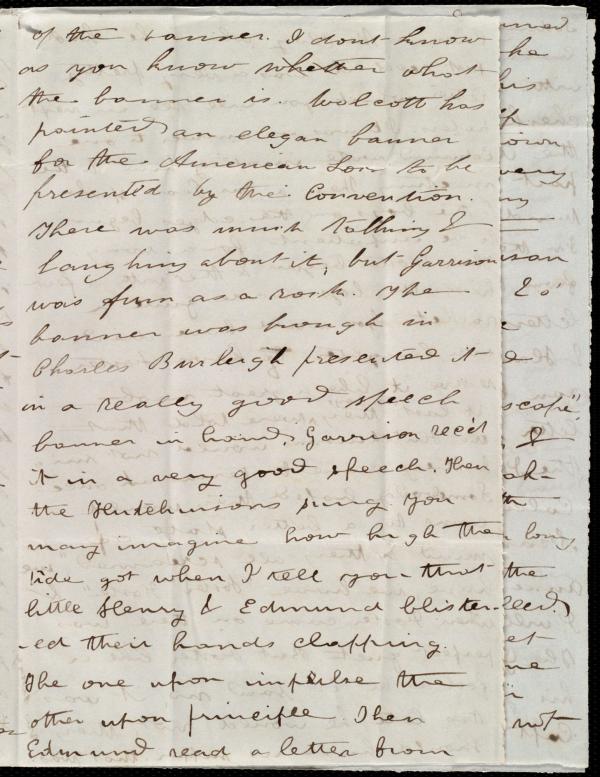 of the banner. I dont know
as you know whether what
the banner is. Wolcott has
painted an elegan banner
for the American Soc. to be
presented by the Convention.
There was much talking &
laughing about it, but Garrison
was firm as a rock. The
banner was brough in
Charles Burleigh presented it
in a really good speech,
banner in hand, Garrison rec'd
it in a very good speech. Then
the Hutchinsons sung you
may imagine how high the
tide got when I tell you that
little Henry & Edmund blister-
-ed their hands clapping.
The one upon impulse the
other upon principle Then
Edmund read a letter from
he
his
own
very
my
&
scape"
&
th
long
the
et
me
not